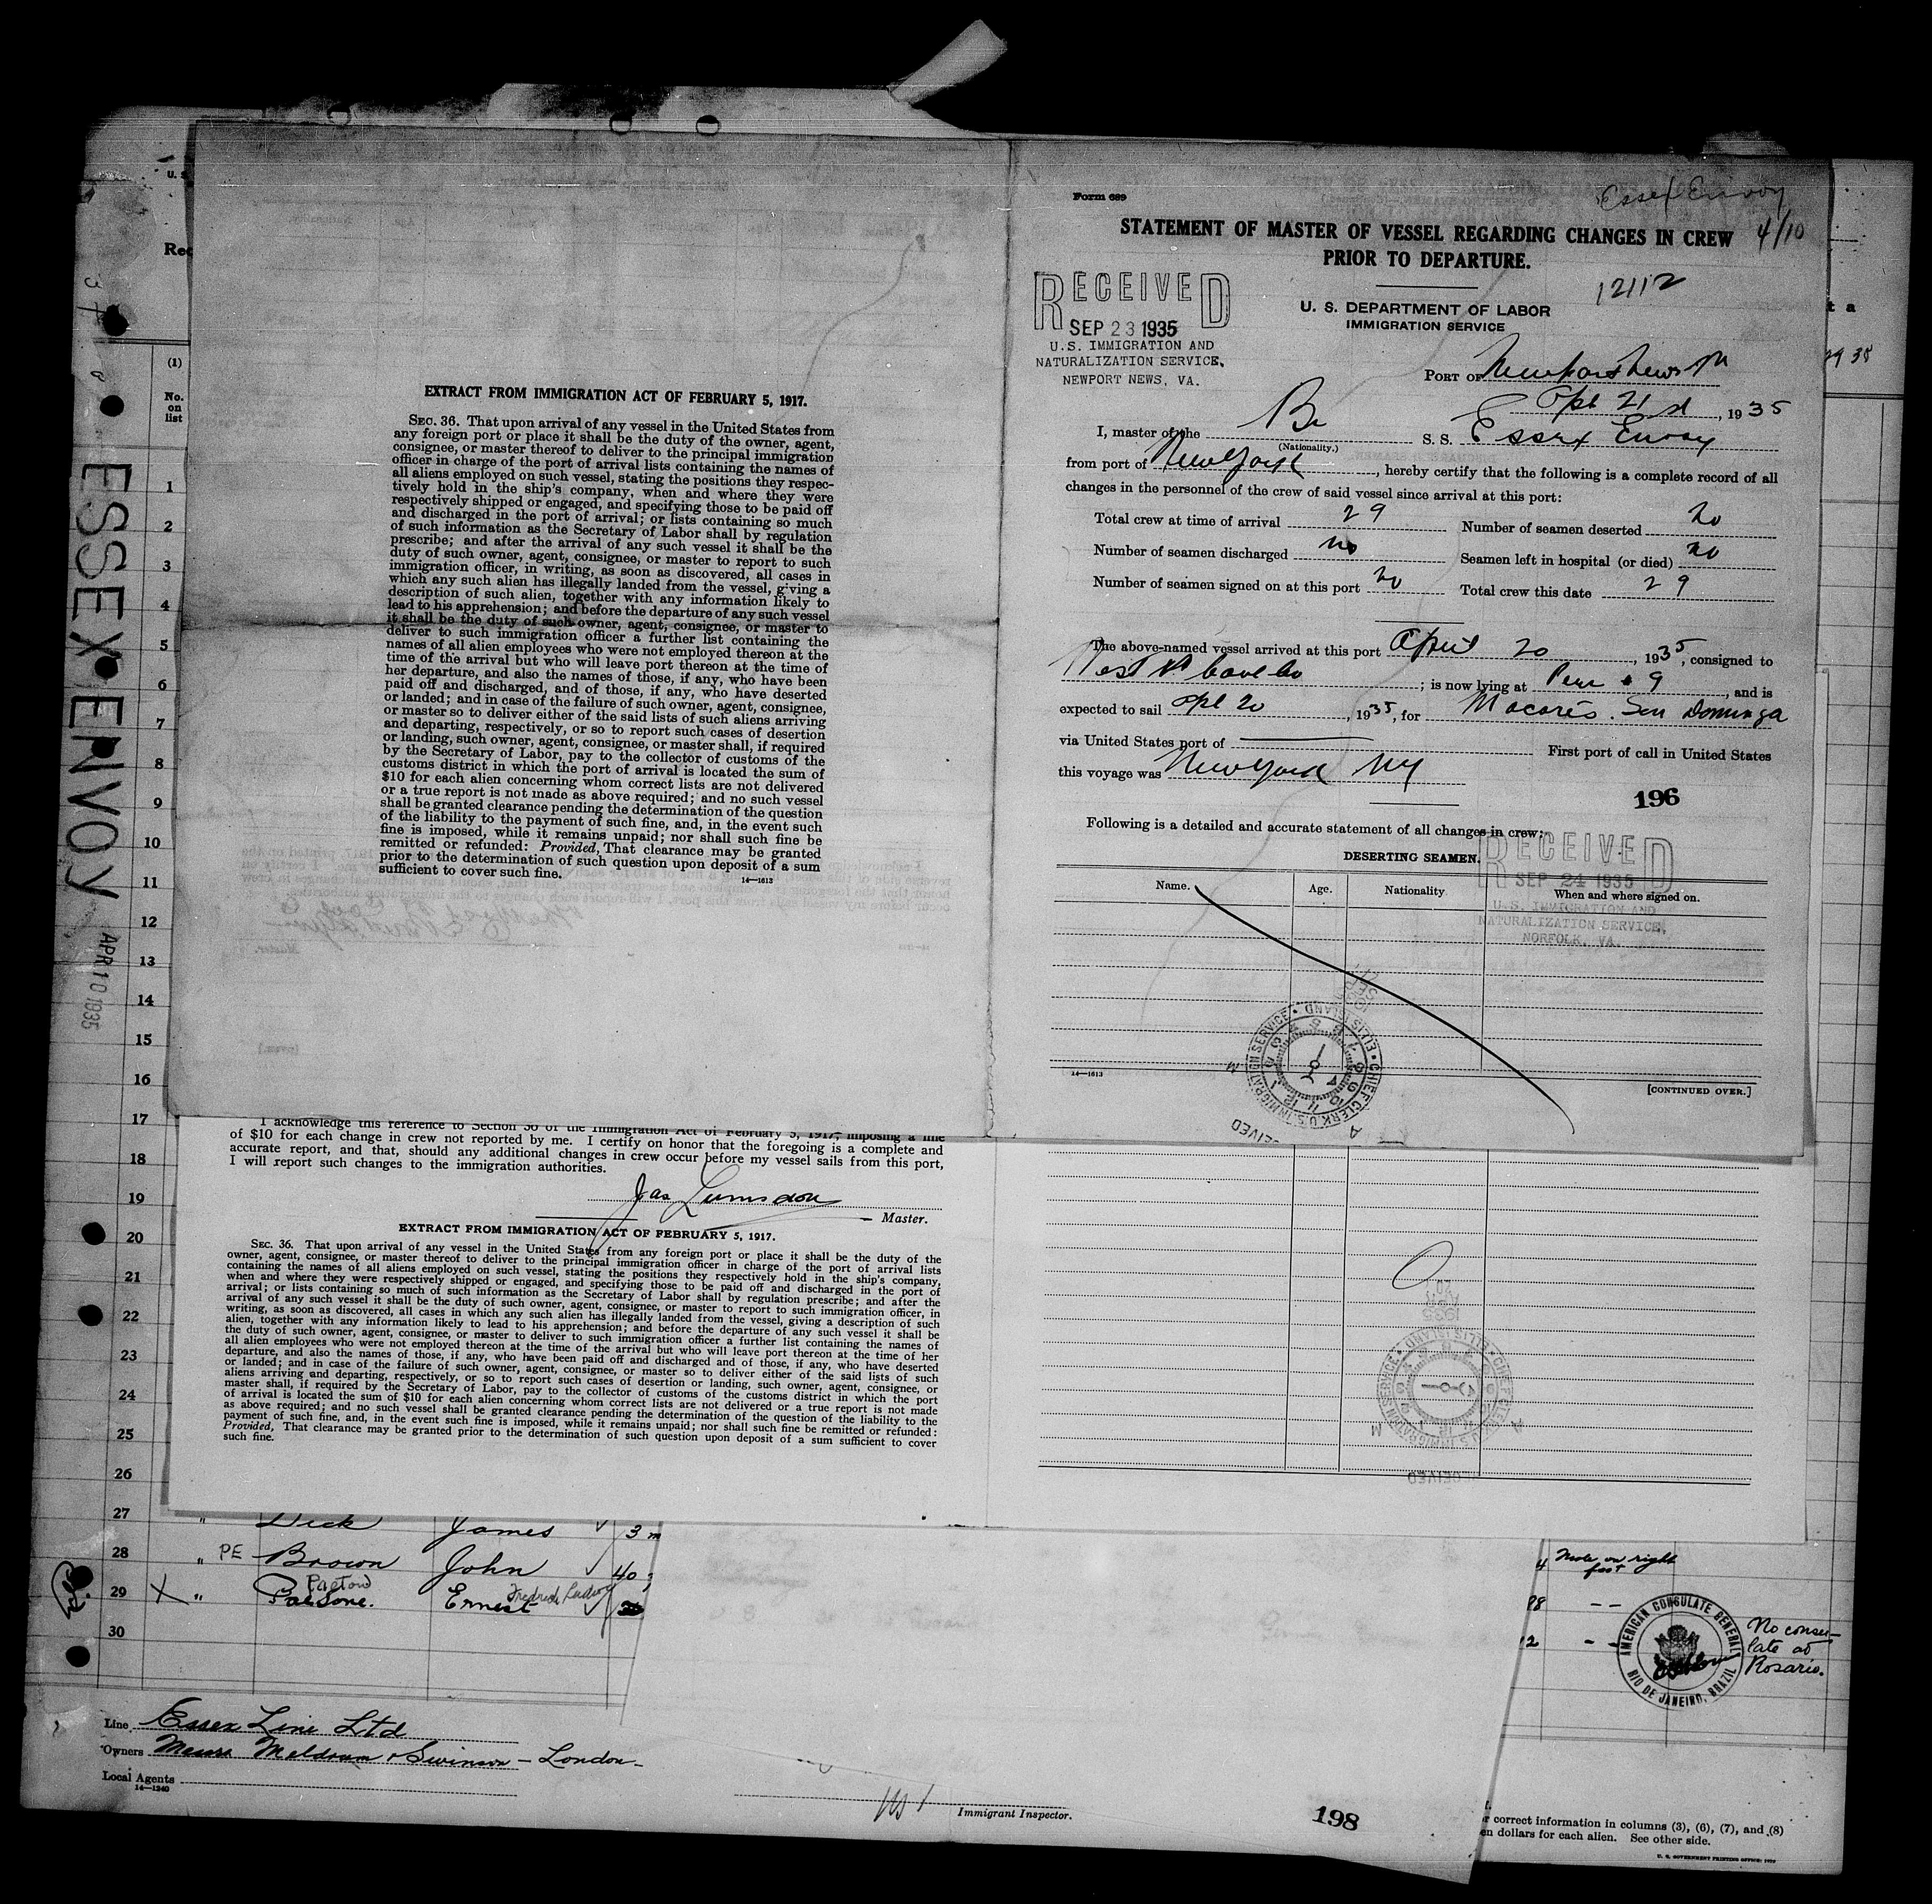 ESSEX ENVOY
APR 10 1935
U. S.
Rec
(1)
No.
on
list
1
2
3
4
5
6
7
8
9
10
11
12
13
14
15
16
17
18
19
20
21
22
23
24
25
26
27
28
29
30
EXTRACT FROM IMMIGRATION ACT OF FEBRUARY 5, 1917.
SEC. 36. That upon arrival of any vessel in the United States from
any foreign port or place it shall be the duty of the owner, agent,
consignee, or master thereof to deliver to the principal immigration
officer in charge of the port of arrival lists containing the names of
all aliens employed on such vessel, stating the positions they respec-
tively hold in the ship's company, when and where they were
respectively shipped or engaged, and specifying those to be paid off
and discharged in the port of arrival; or lists containing so much
of such information as the Secretary of Labor shall by regulation
prescribe; and after the arrival of any such vessel it shall be the
duty of such owner, agent, consignee, or master to report to such
immigration officer, in writing, as soon as discovered, all cases in
which any such alien has illegally landed from the vessel, giving a
description of such alien, together with any information likely to
lead to his apprehension; and before the departure of any such vessel
it shall be the duty of such owner, agent, consignee, or master to
deliver to such immigration officer a further list containing the
names of all alien employees who were not employed thereon at the
time of the arrival but who will leave port thereon at the time of
her departure, and also the names of those, if any, who have been
paid off and discharged, and of those, if any, who have deserted
or landed; and in case of the failure of such owner, agent, consignee,
or master so to deliver either of the said lists of such aliens arriving
and departing, respectively, or so to report such cases of desertion
or landing, such owner, agent, consignee, or master shall, if required
by the Secretary of Labor, pay to the collector of customs of the
customs district in which the port of arrival is located the sum of
$10 for each alien concerning whom correct lists are not delivered
or a true report is not made as above required; and no such vessel
shall be granted clearance pending the determination of the question
of the liability to the payment of such fine, and, in the event such
fine is imposed, while it remains unpaid; nor shall such fine be
remitted or refunded: Provided, That clearance may be granted
prior to the determination of such question upon deposit of a sum
sufficient to cover such fine.
14—1613
Form 689
Essex Envoy
4/10
STATEMENT OF MASTER OF VESSEL REGARDING CHANGES IN CREW
PRIOR TO DEPARTURE.
12112
RECEIVED
SEP 23 1935
U.S. IMMIGRATION AND
NATURALIZATION SERVICE,
NEWPORT NEWS, VA.
U. S. DEPARTMENT OF LABOR
IMMIGRATION SERVICE
PORT OF Newport News
Apl 21, 1935
I, master of the Br S. S. Essex Envoy
(Nationality.)
from port of New York, hereby certify that the following is a complete record of all
changes in the personnel of the crew of said vessel since arrival at this port:
Total crew at time of arrival 29 Number of seamen deserted no
Number of seamen discharged no Seamen left in hospital (or died) no
Number of seamen signed on at this port no Total crew this date 29
The above-named vessel arrived at this port April 20, 1935, consigned to
; is now lying at Pier 9, and is
expected to sail Apl 20, 1935, for Macoris. San Dominga
via United States port of First port of call in United States
this voyage was New York NY
196
Following is a detailed and accurate statement of all changes in crew:
DESERTING SEAMEN.
RECEIVED
SEP 24 1935
U.S. IMMIGRATION AND
NATURALIZATION SERVICE,
NORFOLK, VA.
Name. Age. Nationality When and where signed on.
CHIEF CLERK U.S. IMMIGRATION SERVICE • ELLIS ISLAND
14—1613
[CONTINUED OVER.]
I acknowledge this reference to Section 36 of the Immigration Act of February 5, 1917, imposing a fine
of $10 for each change in crew not reported by me. I certify on honor that the foregoing is a complete and
accurate report, and that, should any additional changes in crew occur before my vessel sails from this port,
I will report such changes to the immigration authorities.
Jas Lumsdon
Master.
EXTRACT FROM IMMIGRATION ACT OF FEBRUARY 5, 1917.
SEC. 36. That upon arrival of any vessel in the United States from any foreign port or place it shall be the duty of the
owner, agent, consignee, or master thereof to deliver to the principal immigration officer in charge of the port of arrival lists
containing the names of all aliens employed on such vessel, stating the positions they respectively hold in the ship's company,
when and where they were respectively shipped or engaged, and specifying those to be paid off and discharged in the port of
arrival; or lists containing so much of such information as the Secretary of Labor shall by regulation prescribe; and after the
arrival of any such vessel it shall be the duty of such owner, agent, consignee, or master to report to such immigration officer, in
writing, as soon as discovered, all cases in which any such alien has illegally landed from the vessel, giving a description of such
alien, together with any information likely to lead to his apprehension; and before the departure of any such vessel it shall be
the duty of such owner, agent, consignee, or master to deliver to such immigration officer a further list containing the names of
all alien employees who were not employed thereon at the time of the arrival but who will leave port thereon at the time of her
departure, and also the names of those, if any, who have been paid off and discharged and of those, if any, who have deserted
or landed; and in case of the failure of such owner, agent, consignee, or master so to deliver either of the said lists of such
aliens arriving and departing, respectively, or so to report such cases of desertion or landing, such owner, agent, consignee, or
master shall, if required by the Secretary of Labor, pay to the collector of customs of the customs district in which the port
of arrival is located the sum of $10 for each alien concerning whom correct lists are not delivered or a true report is not made
as above required; and no such vessel shall be granted clearance pending the determination of the question of the liability to the
payment of such fine, and, in the event such fine is imposed, while it remains unpaid; nor shall such fine be remitted or refunded:
Provided, That clearance may be granted prior to the determination of such question upon deposit of a sum sufficient to cover
such fine.
" Dick James
" PE Brown John 40
Paetow Fredrich Ludwig
X " Ernest
4 Mole on right
foot
AMERICAN CONSULATE GENERAL
RIO DE JANEIRO, BRAZIL
No consu-
late at
Rosario.
Line Essex Line Ltd
Owners Messrs Meldrum & Swinson - London
Local Agents
14—1240
Immigrant Inspector.
198
r correct information in columns (3), (6), (7), and (8)
en dollars for each alien. See other side.
U. S. GOVERNMENT PRINTING OFFICE